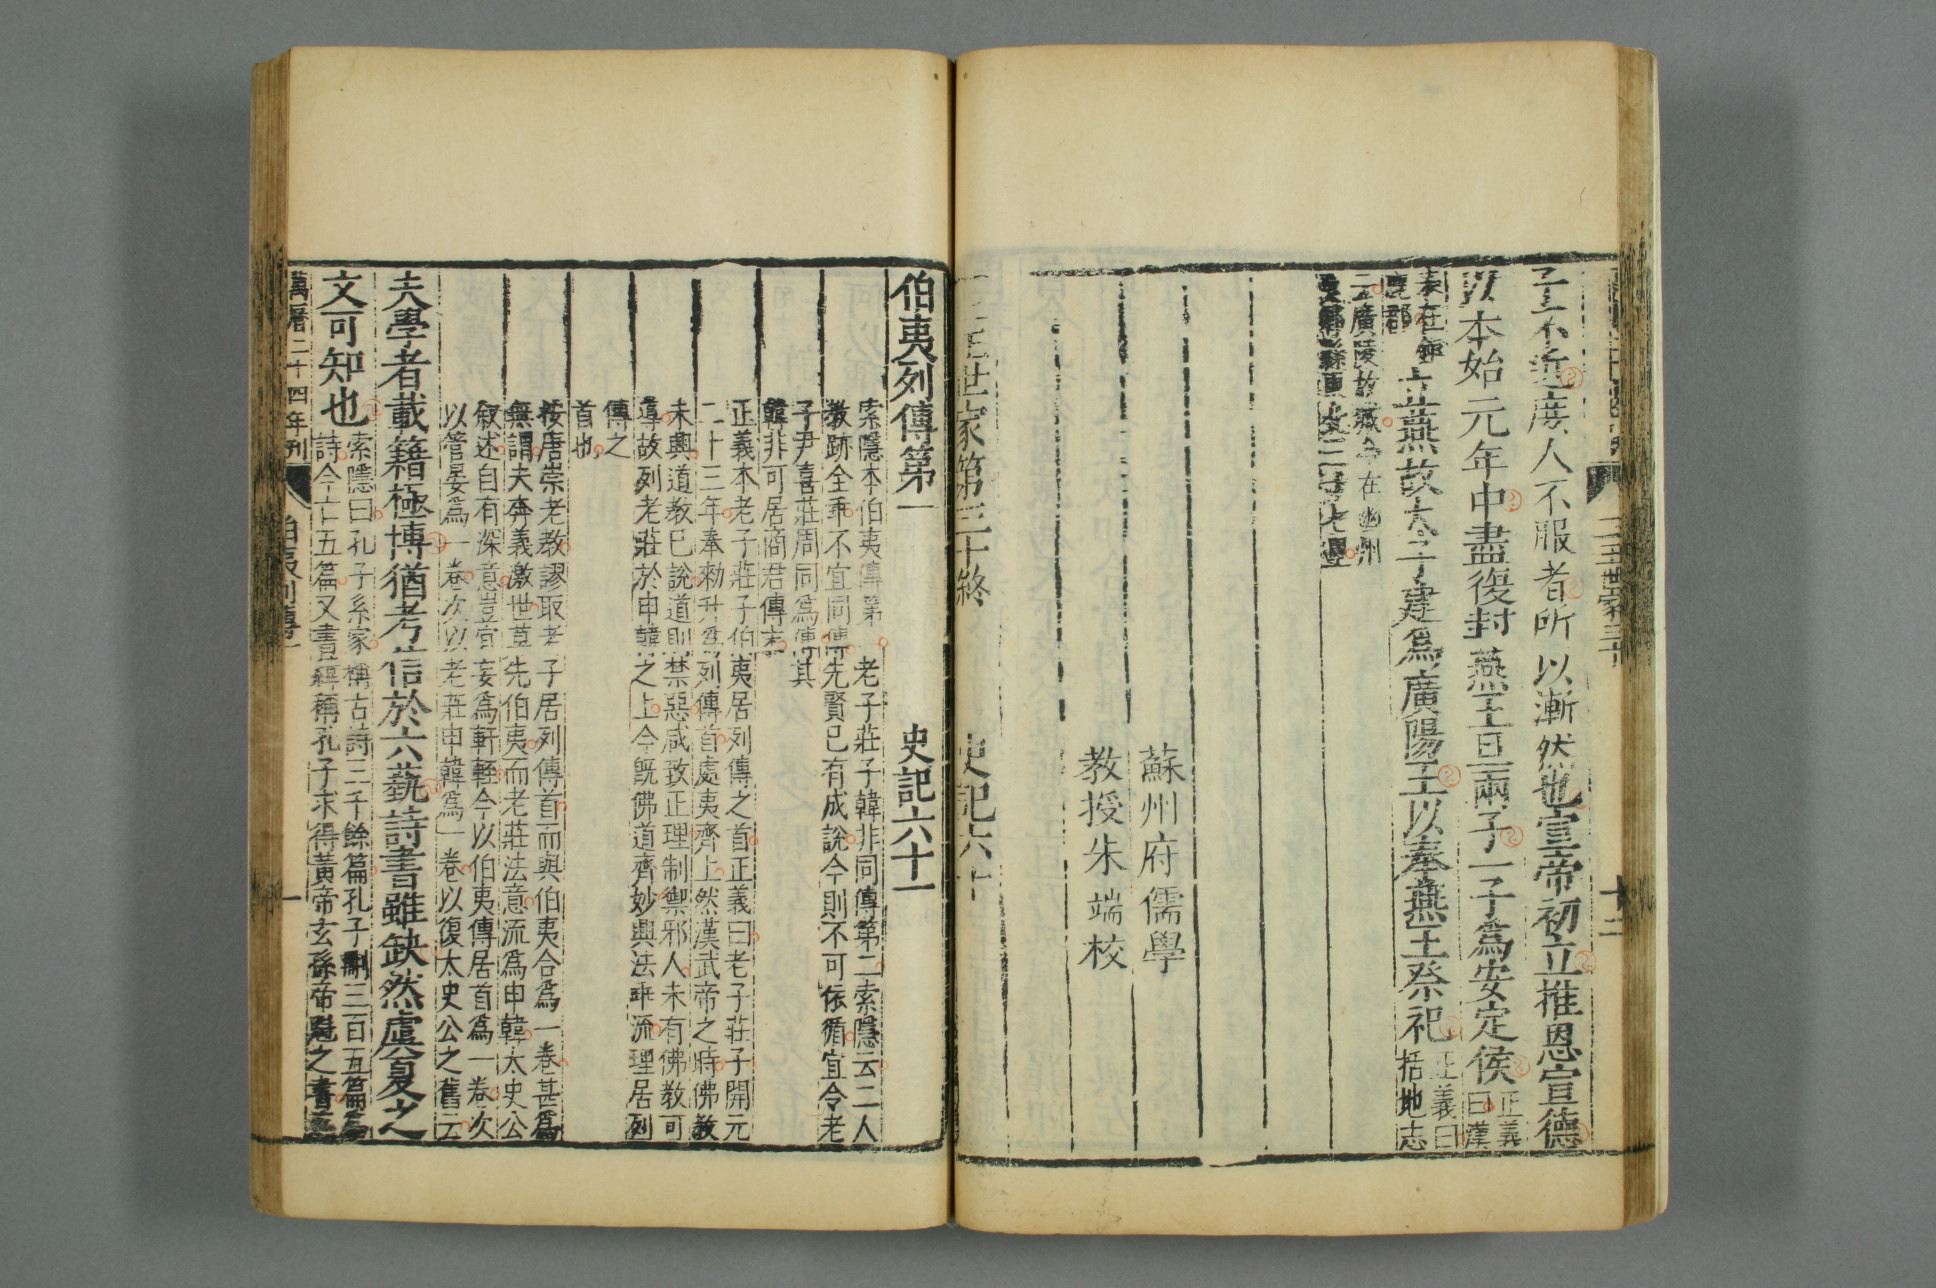 三王世家三十
十二
子王不近度人不服者所以漸然也宣帝初立推恩宣德
以本始元年中盡復封燕王旦兩子一子爲安定侯正義曰漢
表在鉅鹿郡立燕故太子建爲廣陽王以奉燕王祭祀正義曰括地志
云廣陵故城今在幽州
良鄉縣東北三十七里
蘇州府儒學
教授朱端校
三王世家第三十終 史記六十
伯夷列傳第一 史記六十一
索隱本伯夷傳第一老子莊子韓非同傳第二索隱云二人
教跡全乖不宜同傳先賢已有成說今則不可依循宜令老
子尹喜莊周同爲傳其
韓非可居商君傳末
正義本老子莊子伯夷居列傳之首正義曰老子莊子開元
二十三年奉勑升爲列傳首處夷齊上然漢武帝之時佛教
未興道教已說道則禁惡咸致正理制禦邪人未有佛教可
導故列老莊於申韓之上今旣佛道齊妙興法乖流理居列
傳之
首也
按唐崇老教謬取老子居列傳首而與伯夷合爲一卷甚爲
無謂夫奔義激世莫先伯夷而老莊法意流爲申韓太史公
叙述自有深意豈宜妄爲軒輊今以伯夷傳居首爲一卷次
以管晏爲一卷次以老莊申韓爲一卷以復太史公之舊云
夫學者載籍極博猶考信於六藝詩書雖缺然虞夏之
文可知也索隱曰孔子系家稱古詩三千餘篇孔子刪三百五篇爲
詩今亡五篇又書緯稱孔子求得黃帝玄孫帝魁之書
萬曆二十四年刊 伯夷列傳一 一